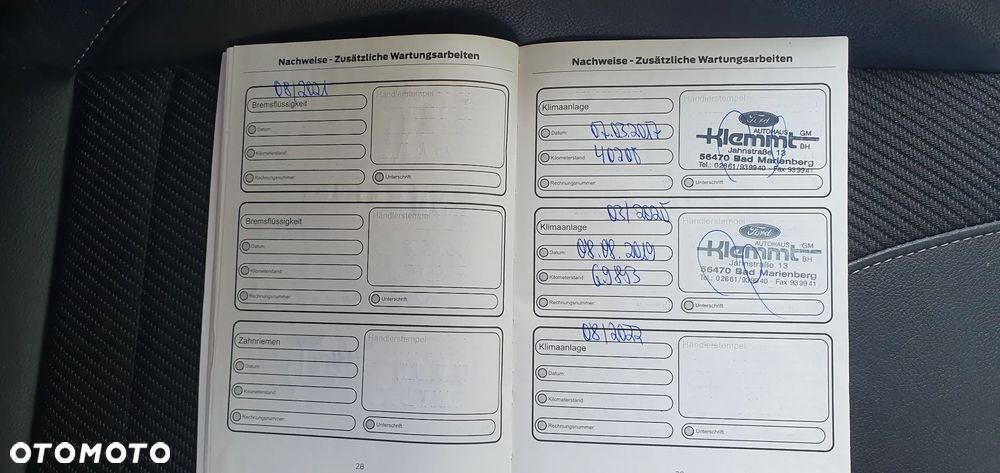 Nachweise - Zusätzliche Wartungsarbeiten
08/2021
Bremsflüssigkeit
Händlerstempel
Datum:
Kilometerstand:
Rechnungsnummer:
Unterschrift:
Bremsflüssigkeit
Händlerstempel
Datum:
Kilometerstand:
Rechnungsnummer:
Unterschrift:
Zahnriemen
Händlerstempel
Datum:
Kilometerstand:
Rechnungsnummer:
Unterschrift:
28
Nachweise - Zusätzliche Wartungsarbeiten
Klimaanlage
Händlerstempel
Datum: 07.03.2017
Kilometerstand:
Rechnungsnummer:
Ford
AUTOHAUS GM
Klemmt BH
Jahnstraße 13
56470 Bad Marienberg
Tel.: 02661/939940 · Fax 939941
Unterschrift:
03/2020
Klimaanlage
Händlerstempel
Datum: 08.08.2019
Kilometerstand: 69893
Rechnungsnummer:
Ford
AUTOHAUS GM
Klemmt BH
Jahnstraße 13
56470 Bad Marienberg
Tel.: 02661/939940 · Fax 939941
Unterschrift:
08/2022
Klimaanlage
Händlerstempel
Datum:
Kilometerstand:
Rechnungsnummer:
Unterschrift:
OTOMOTO